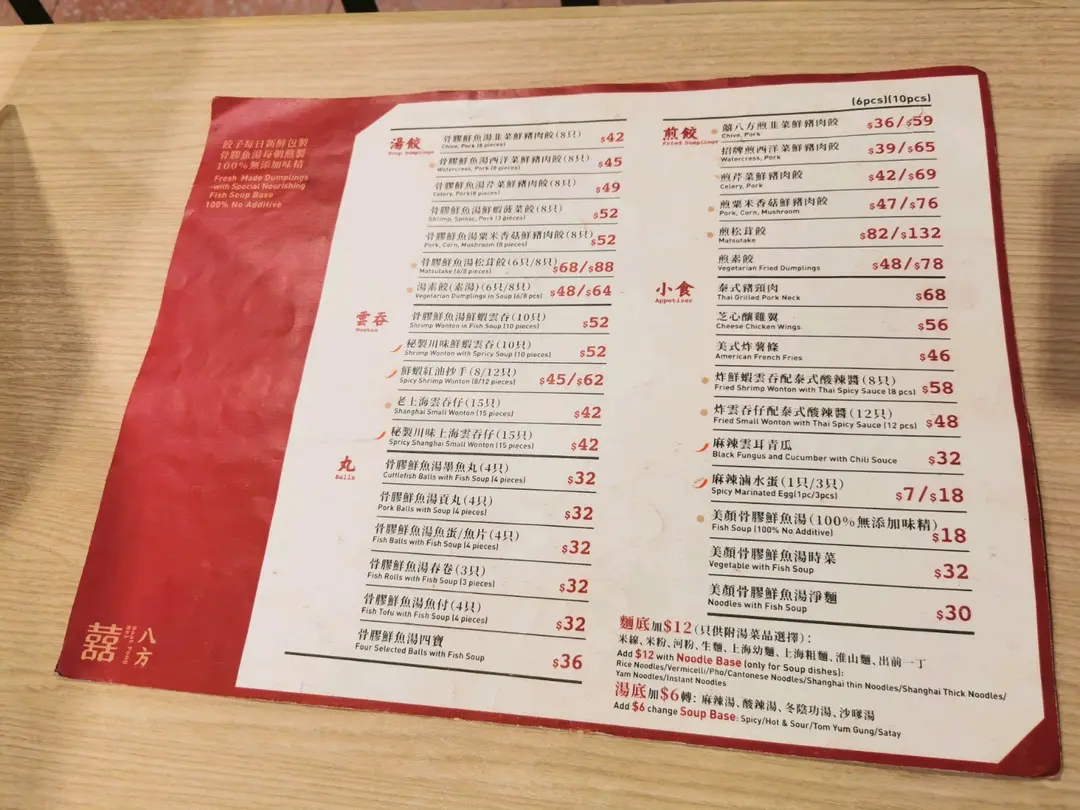 餃子每日新鮮包製
骨膠魚湯每朝煎製
100%無添加味精
Fresh Made Dumplings
-with Special Nourishing
Fish Soup Base
100% No Additive
囍
八方
湯餃
Soup Dumplings
骨膠鮮魚湯韭菜鮮豬肉餃(8只) $42
Chive, Pork (8 pieces)
骨膠鮮魚湯西洋菜鮮豬肉餃(8只) $45
Watercress, Pork (8 pieces)
骨膠鮮魚湯芹菜鮮豬肉餃(8只) $49
Celery, Pork(8 pieces)
骨膠鮮魚湯鮮蝦菠菜餃(8只) $52
骨膠鮮魚湯粟米香菇鮮豬肉餃(8只) $52
Pork, Corn, Mushroom (8 pieces)
骨膠鮮魚湯松茸餃(6只/8只) $68/$88
Matsutake (6/8 pieces)
湯素餃(素湯)(6只/8只) $48/$64
Vegetarian Dumplings in Soup (6/8 pcs)
雲吞
Wonton
骨膠鮮魚湯鮮蝦雲吞(10只) $52
Shrimp Wonton in Fish Soup (10 pieces)
秘製川味鮮蝦雲吞(10只) $52
Shrimp Wonton with Spricy Soup (10 pieces)
鮮蝦紅油抄手(8/12只) $45/$62
Spicy Shrimp Wonton (8/12 pieces)
老上海雲吞仔(15只) $42
Shanghai Small Wonton (15 pieces)
秘製川味上海雲吞仔(15只) $42
Spricy Shanghai Small Wonton (15 pieces)
丸
Balls
骨膠鮮魚湯墨魚丸(4只) $32
Cuttlefish Balls with Fish Soup (4 pieces)
骨膠鮮魚湯貢丸(4只) $32
Pork Balls with Soup (4 pieces)
骨膠鮮魚湯魚蛋/魚片(4只) $32
Fish Balls with Fish Soup (4 pieces)
骨膠鮮魚湯春卷(3只) $32
Fish Rolls with Fish Soup (3 pieces)
骨膠鮮魚湯魚付(4只) $32
Fish Tofu with Fish Soup (4 pieces)
骨膠鮮魚湯四寶 $36
Four Selected Balls with Fish Soup
(6pcs)(10pcs)
煎餃
Fried Dumplings
囍八方煎韭菜鮮豬肉餃 $36/$59
Chive, Pork
招牌煎西洋菜鮮豬肉餃 $39/$65
Watercress, Pork
煎芹菜鮮豬肉餃 $42/$69
Celery, Pork
煎粟米香菇鮮豬肉餃 $47/$76
Pork, Corn, Mushroom
煎松茸餃 $82/$132
Matsutake
煎素餃 $48/$78
Vegetarian Fried Dumplings
小食
Appetizer
泰式豬頸肉 $68
Thai Grilled Pork Neck
芝心釀雞翼 $56
Cheese Chicken Wings
美式炸薯條 $46
American French Fries
炸鮮蝦雲吞配泰式酸辣醬(8只) $58
Fried Shrimp Wonton with Thai Spicy Sauce (8 pcs)
炸雲吞仔配泰式酸辣醬(12只) $48
Fried Small Wonton with Thai Spicy Sauce (12 pcs)
麻辣雲耳青瓜 $32
Black Fungus and Cucumber with Chili Souce
麻辣滷水蛋(1只/3只) $7/$18
Spicy Marinated Egg(1pc/3pcs)
美顏骨膠鮮魚湯(100%無添加味精) $18
Fish Soup (100% No Additive)
美顏骨膠鮮魚湯時菜 $32
Vegetable with Fish Soup
美顏骨膠鮮魚湯淨麵 $30
Noodles with Fish Soup
麵底加$12(只供附湯菜品選擇):
米線、米粉、河粉、生麵、上海幼麵、上海粗麵、淮山麵、出前一丁
Add $12 with Noodle Base (only for Soup dishes):
Rice Noodles/Vermicelli/Pho/Cantonese Noodles/Shanghai thin Noodles/Shanghai Thick Noodles/
Yam Noodles/Instant Noodles
湯底加$6轉: 麻辣湯、酸辣湯、冬陰功湯、沙嗲湯
Add $6 change Soup Base: Spicy/Hot & Sour/Tom Yum Gung/Satay